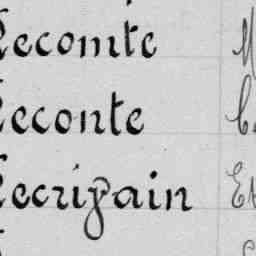 Lecomte
Leconte
Lecrivain